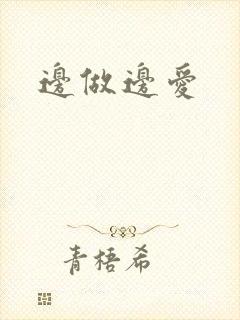 邊做邊愛
青梧希